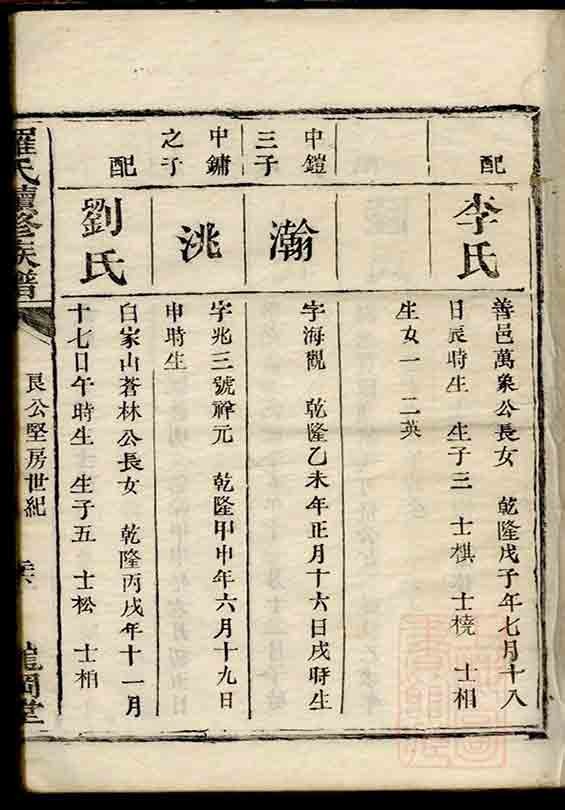 配
李氏
善邑萬象公長女 乾隆戊子年七月十八
日辰時生 生子三 士棋 士橈 士相
生女一 十二英
中鎧
三子
瀚
字海觀 乾隆乙未年正月十六日戌時生
中鏞
之子
洮
字兆三號禅元 乾隆甲申年六月十九日
申時生
配
劉氏
白家山蒼林公長女 乾隆丙戌年十一月
十七日午時生 生子五 士松 士柏
羅氏續修族譜
良公堅房世紀